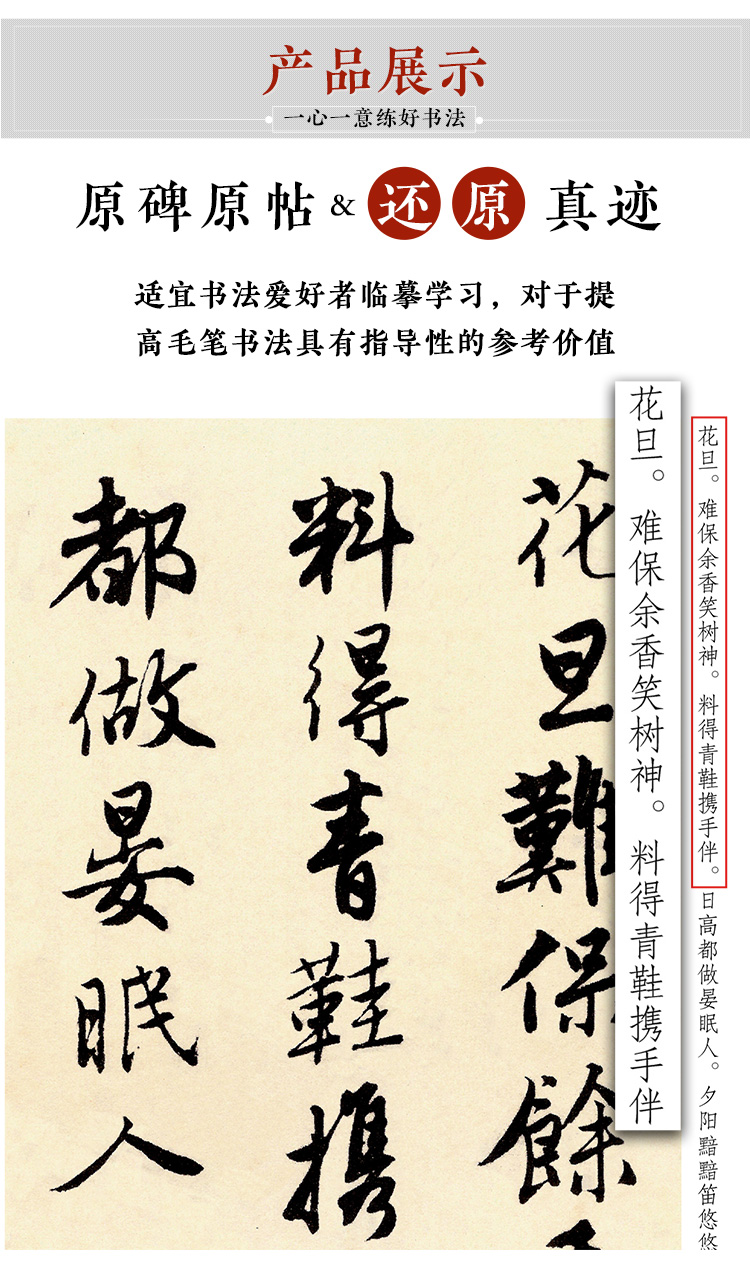 产品展示
一心一意练好书法
原碑原帖&还原真迹
适宜书法爱好者临摹学习，对于提
高毛笔书法具有指导性的参考价值
花旦。难保余香笑树神。料得青鞋携手伴。日高都做晏眠人。夕阳黯黯笛悠悠
花旦。难保余香笑树神。料得青鞋携手伴
花旦難保餘
料得青鞋携
都做晏眠人